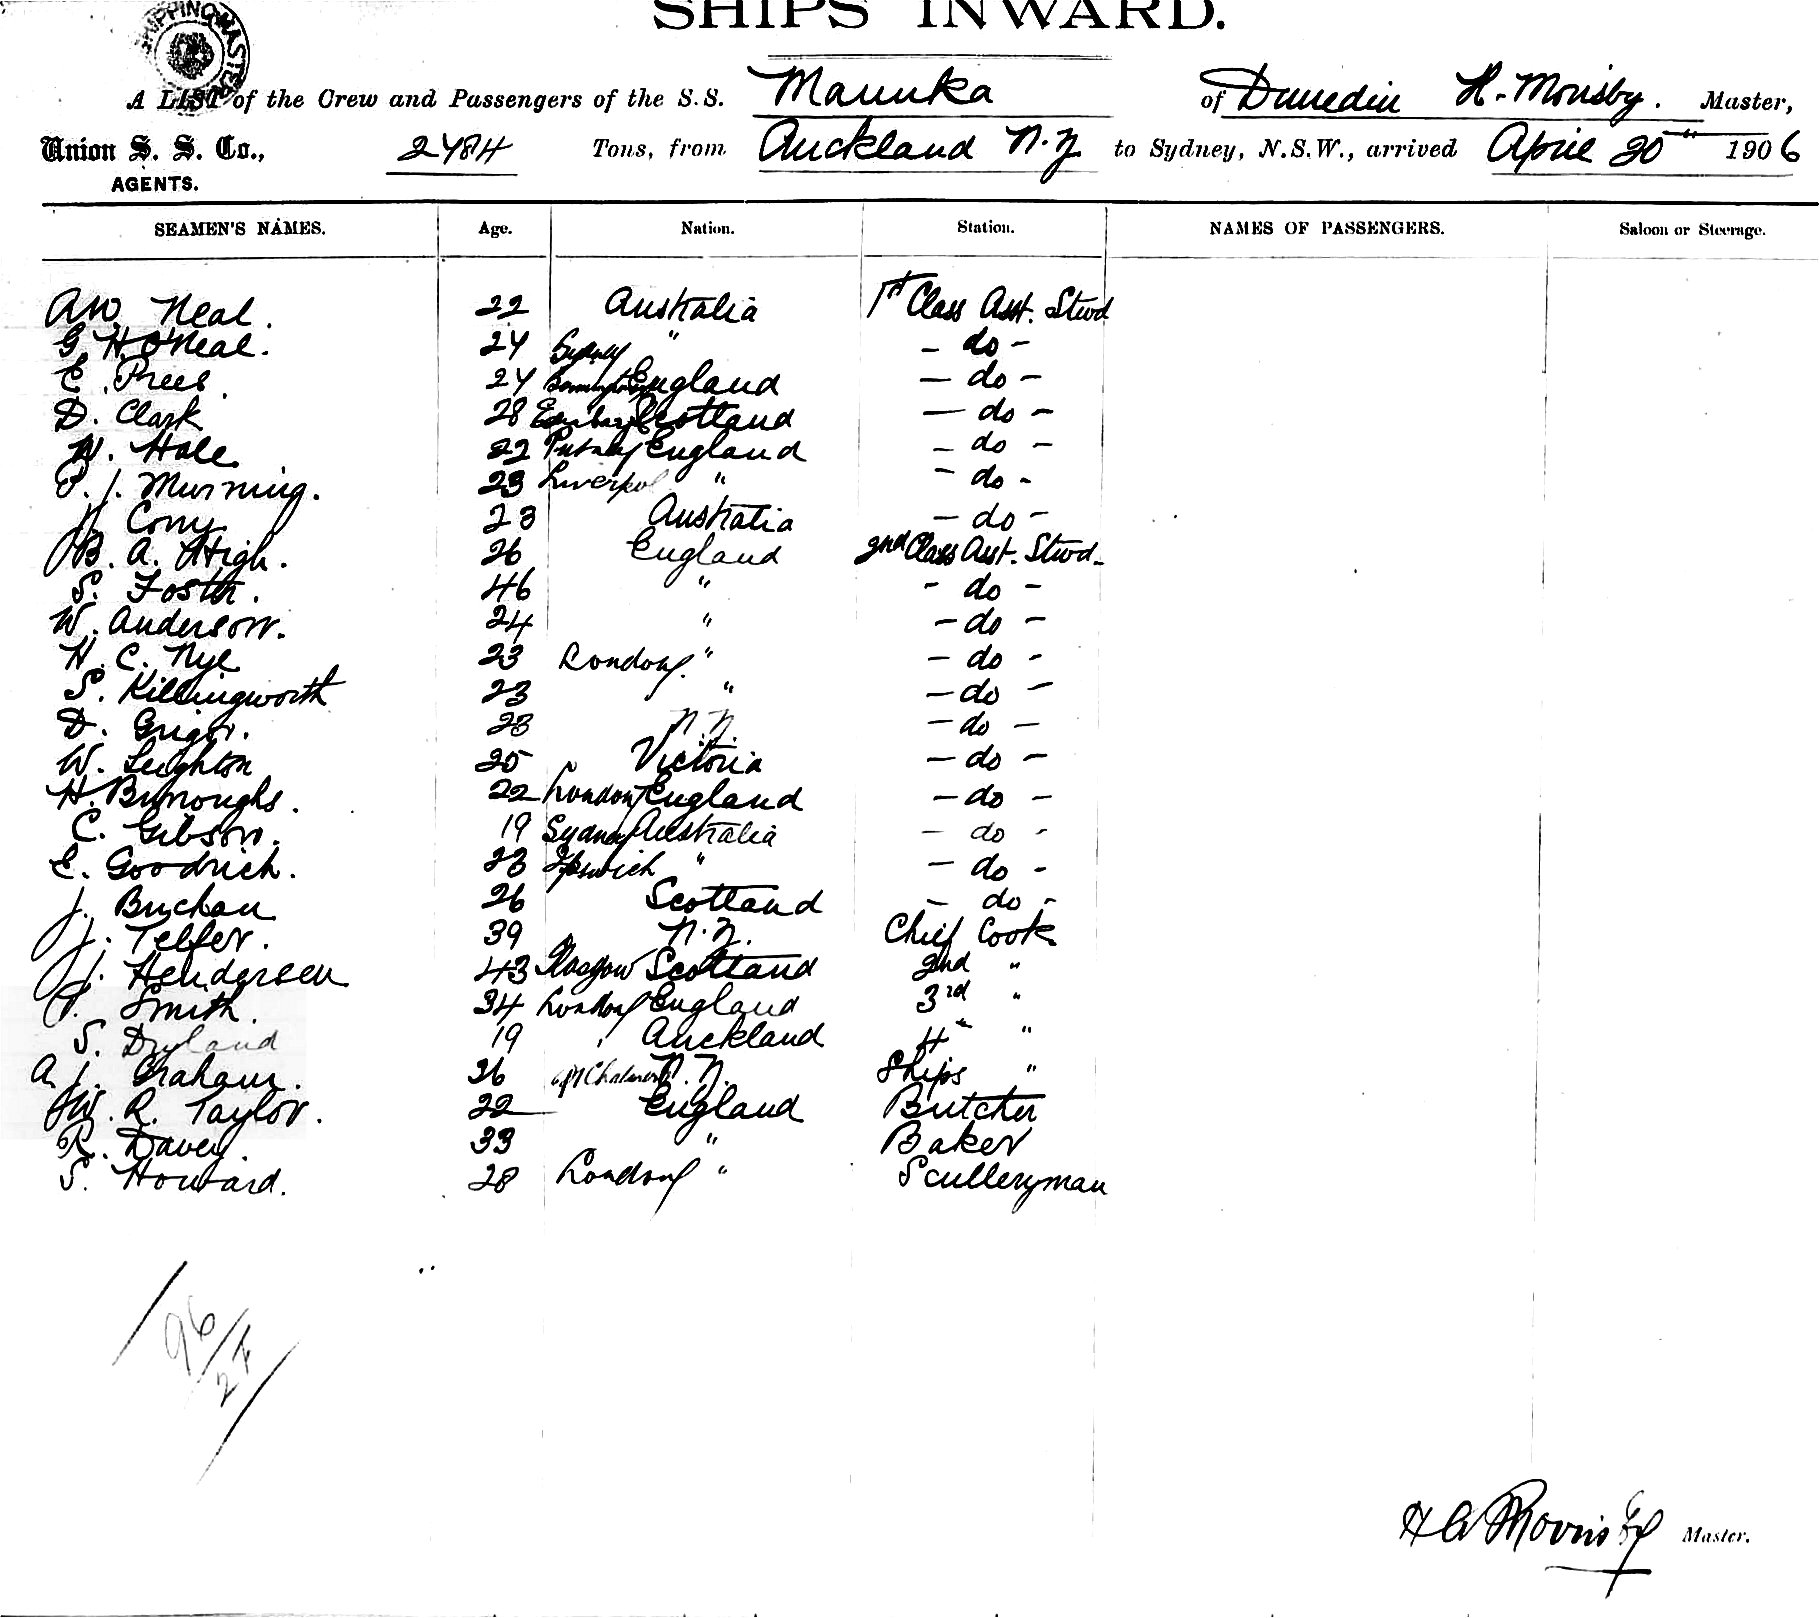 SHIPPING MASTER
SHIPS INWARD.
A LIST of the Crew and Passengers of the S.S. Manuka of Dunedin H. Morisby. Master,
Union S. S. Co., 2484 Tons, from Auckland N.Z to Sydney, N.S.W., arrived April 20th 1906
AGENTS.
SEAMEN'S NAMES. Age. Nation. Station. NAMES OF PASSENGERS. Saloon or Steerage.
AW. Neal. 22 Australia 1st Class Asst. Stwd
G H O'Neal. 24 Sydney " - do -
E. Prees. 24 England - do -
D. Clark 28 Scotland - do -
W. Hale 22 Putney England - do -
J. Murning. 23 Liverpol " - do -
Cony 23 Australia - do -
B. A. High. 26 England 2nd Class Asst. Stwd.
S. Foster. 46 " - do -
W. Anderson. 24 " - do -
H. C. Nye 23 London " - do -
S. Killingworth 23 " - do -
D. Grigor. 23 N.Z. - do -
W. Leighton 25 Victoria - do -
H. Burroughs. 22 London England - do -
C. Gibson. 19 Sydney Australia - do -
E. Goodrich. 23 Ipswich " - do -
J. Buchan 26 Scotland - do -
J. Telfer. 39 N.Z. Chief Cook
J. Henderson 43 Glasgow Scotland 2nd "
Smith. 34 London England 3rd "
S. Dryland 19 Auckland 4th "
A. J. Graham. 36 Pt Chalmers N.Z. Ships "
W. R. Taylor. 22 England Butcher
R. Davey. 33 " Baker
S. Howard. 28 London " Sculleryman
96/27
H A Morrisby Master.